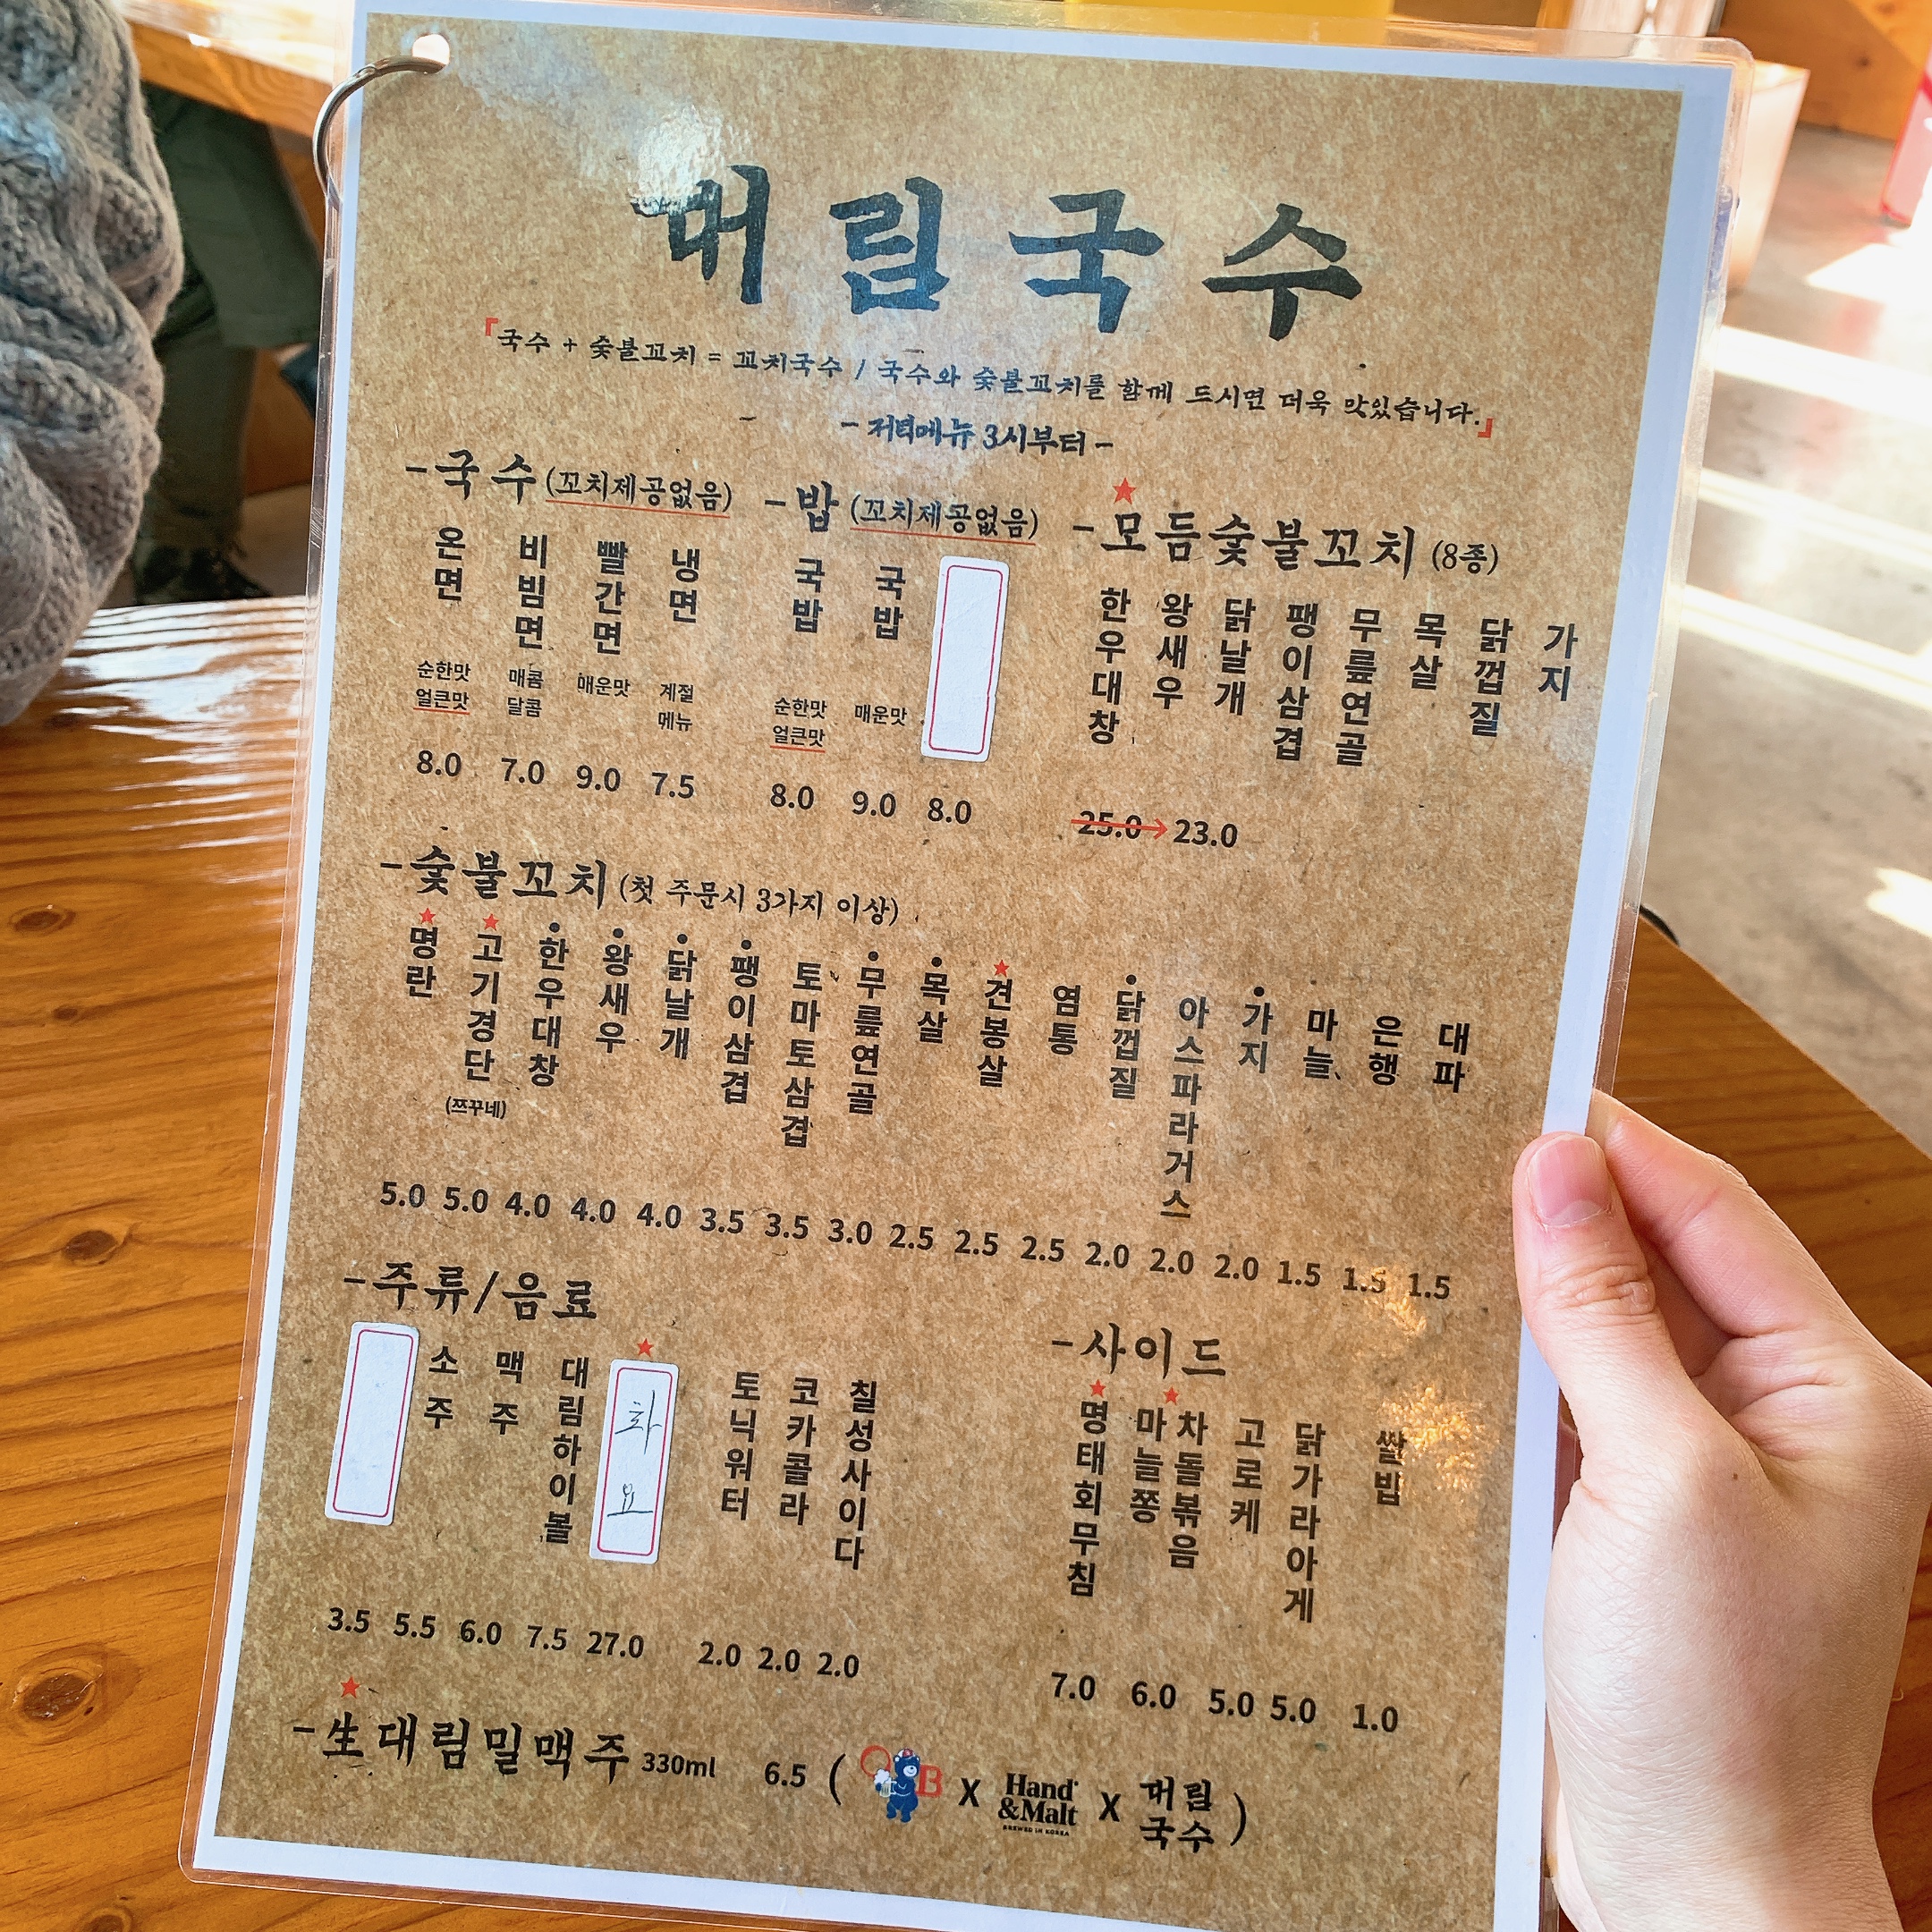 대림국수
『국수 + 숯불꼬치 = 꼬치국수 / 국수와 숯불꼬치를 함께 드시면 더욱 맛있습니다.』
- 저녁메뉴 3시부터 -
- 국수 (꼬치제공없음)
온면 비빔면 빨간면 냉면
순한맛 얼큰맛 매콤달콤 매운맛 계절메뉴
8.0 7.0 9.0 7.5
- 밥 (꼬치제공없음)
국밥 국밥
순한맛 얼큰맛 매운맛
8.0 9.0 8.0
★
- 모듬숯불꼬치 (8종)
한우대창 왕새우 닭날개 팽이삼겹 무릎연골 목살 닭껍질 가지
25.0→23.0
- 숯불꼬치 (첫 주문시 3가지 이상)
★명란 ★고기경단 (쯔꾸네) •한우대창 •왕새우 •닭날개 •팽이삼겹 토마토삼겹 •무릎연골 •목살 ★견봉살 염통 •닭껍질 아스파라거스 •가지 마늘 은행 대파
5.0 5.0 4.0 4.0 4.0 3.5 3.5 3.0 2.5 2.5 2.5 2.0 2.0 2.0 1.5 1.5 1.5
- 주류/음료
소주 맥주 대림하이볼 ★화요 토닉워터 코카콜라 칠성사이다
3.5 5.5 6.0 7.5 27.0 2.0 2.0 2.0
- 사이드
★명태회무침 ★마늘쫑 차돌볶음 고로케 닭가라아게 쌀밥
7.0 6.0 5.0 5.0 1.0
★
- 生대림밀맥주 330ml 6.5 ( OB X Hand &Malt BREWED IN KOREA X 대림국수 )